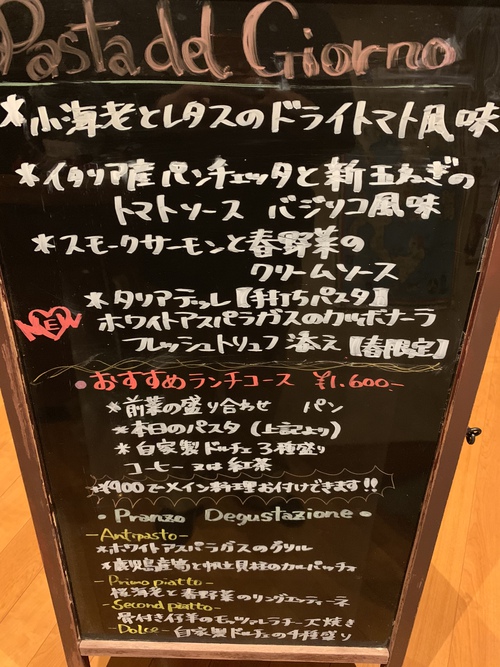 Pasta del Giorno
*小海老とレタスのドライトマト風味
*イタリア産パンチェッタと新玉ねぎの
トマトソース バジリコ風味
*スモークサーモンと春野菜の
クリームソース
*タリアテッレ【手打ちパスタ】
NEW ホワイトアスパラガスのカルボナーラ
フレッシュトリュフ添え【春限定】
●おすすめランチコース ¥1,600.-
*前菜の盛り合わせ パン
*本日のパスタ (上記より)
*自家製ドルチェ3種盛り
コーヒー 又は 紅茶
*¥900でメイン料理お付けできます!!
●Pranzo Degustazione●
-Antipasto-
*ホワイトアスパラガスのグリル
*鹿児島産筍と帆立貝柱のカルパッチョ
-Primo piatto-
桜海老と春野菜のリングエッティーネ
-Second piatto-
骨付き仔羊のモッツァレラチーズ焼き
-Dolce- 自家製ドルチェの4種盛り